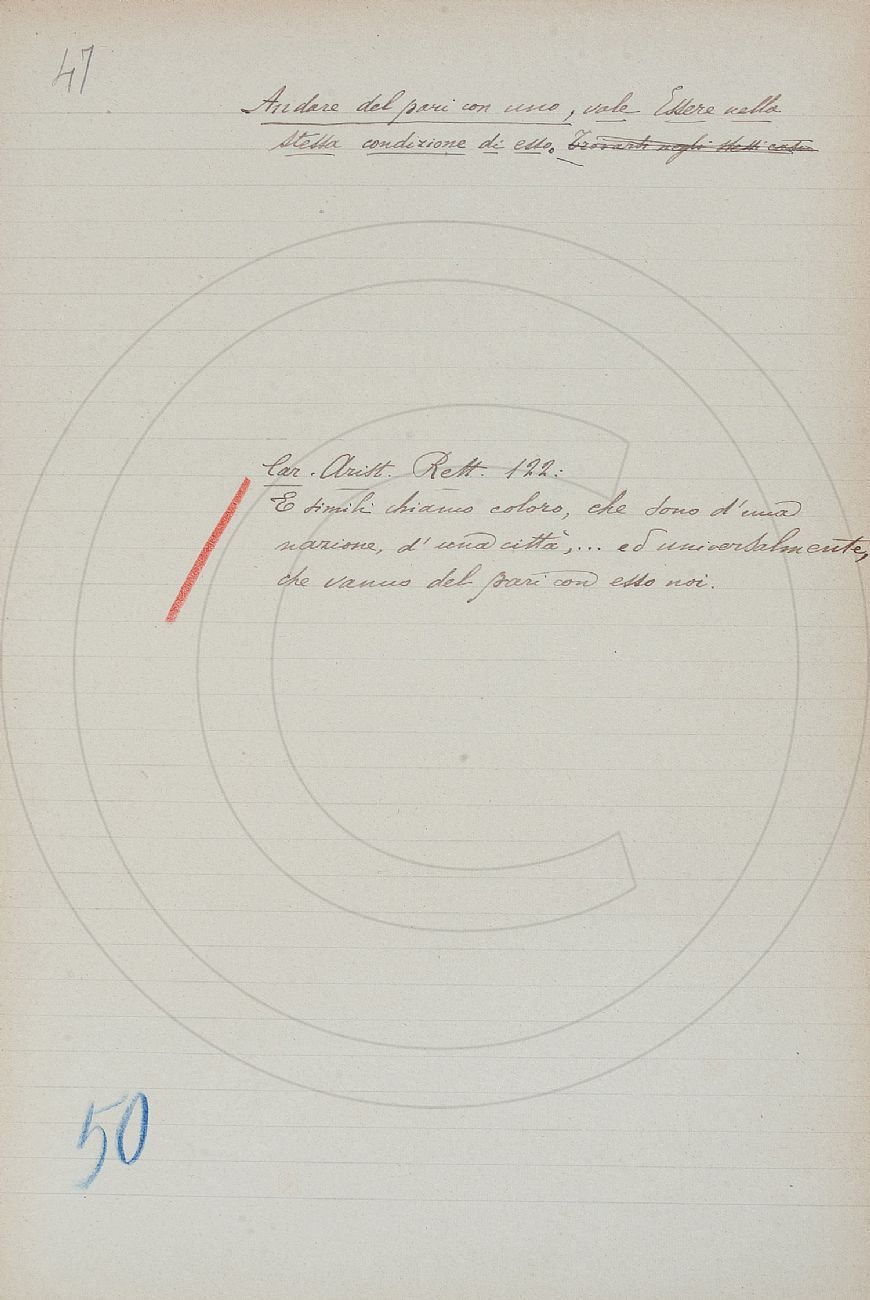 47
Andare del pari con uno, vale Essere nella
stessa condizione di esso. Trovarsi negli stessi casi
Car. Arist. Rett. 122:
E simili chiamo coloro, che sono d'una
nazione, d'una città,... ed universalmente,
che vanno del pari con esso noi.
50